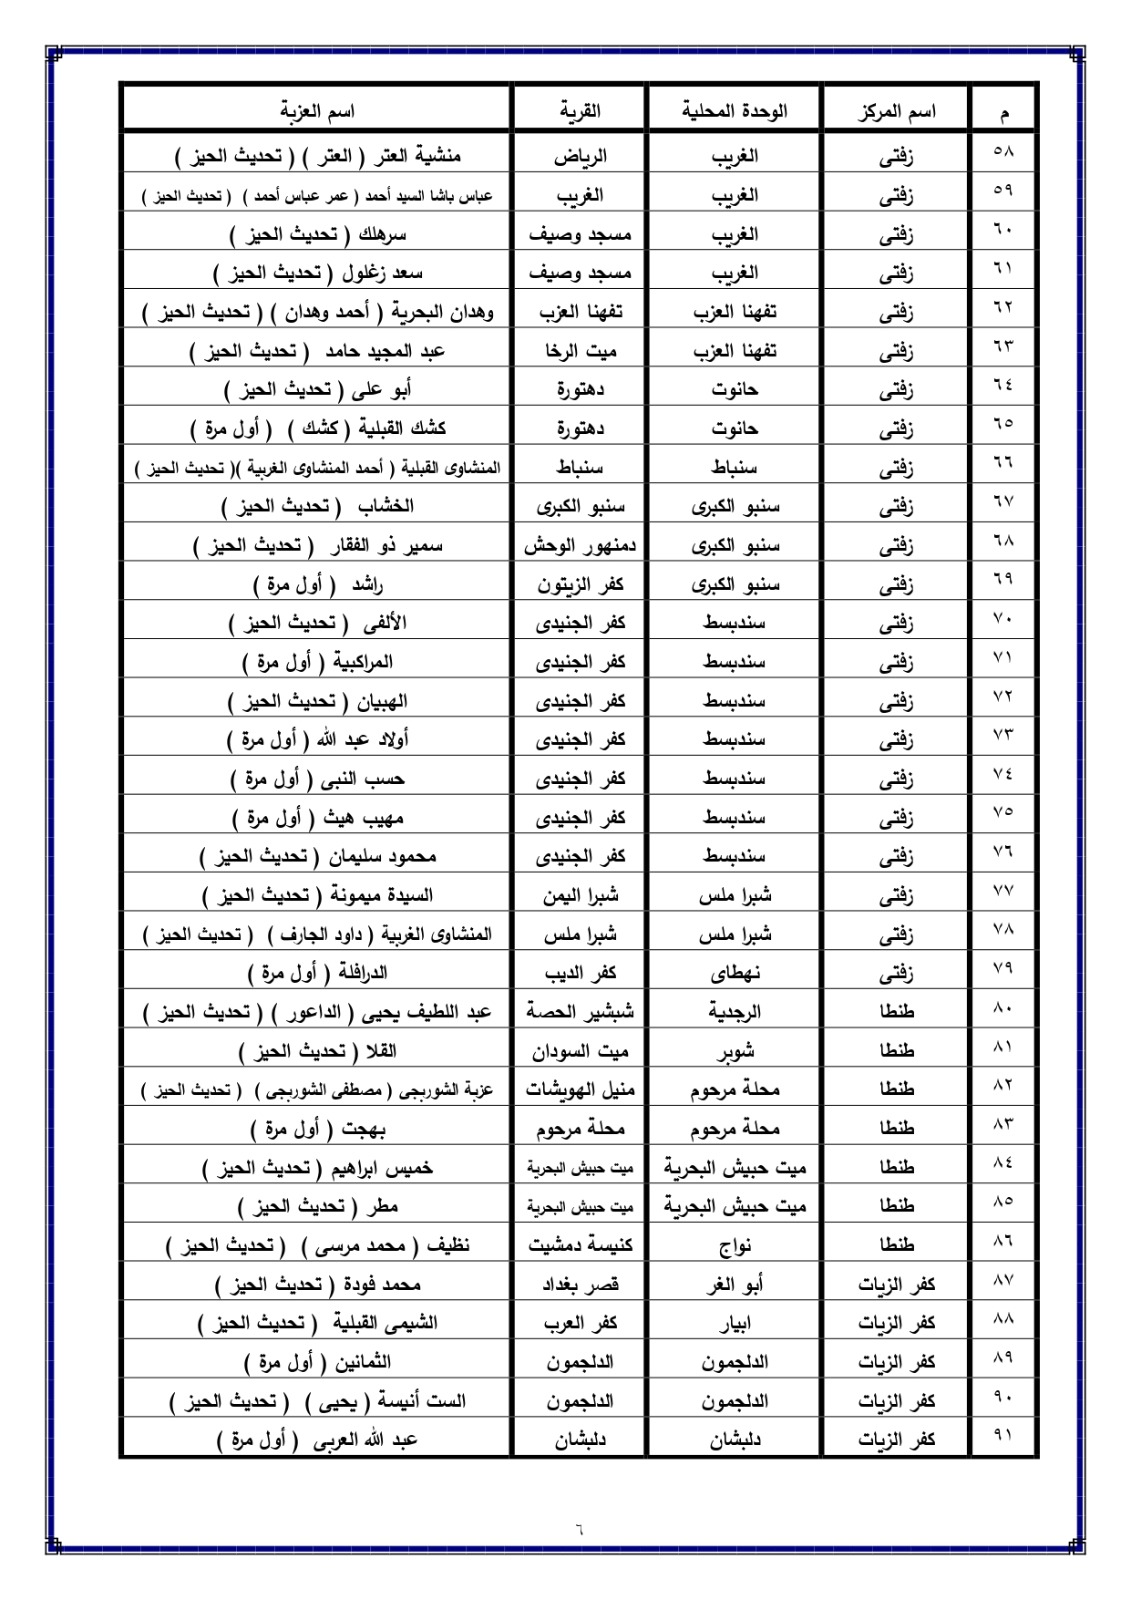 م اسم المركز الوحدة المحلية القرية اسم العزبة
٥٨ زفتى الغريب الرياض منشية العتر ( العتر ) ( تحديث الحيز )
٥٩ زفتى الغريب الغريب عباس باشا السيد أحمد ( عمر عباس أحمد ) ( تحديث الحيز )
٦٠ زفتى الغريب مسجد وصيف سرهلك ( تحديث الحيز )
٦١ زفتى الغريب مسجد وصيف سعد زغلول ( تحديث الحيز )
٦٢ زفتى تفهنا العزب تفهنا العزب وهدان البحرية ( أحمد وهدان ) ( تحديث الحيز )
٦٣ زفتى تفهنا العزب ميت الرخا عبد المجيد حامد ( تحديث الحيز )
٦٤ زفتى حانوت دهتورة أبو على ( تحديث الحيز )
٦٥ زفتى حانوت دهتورة كشك القبلية ( كشك ) ( أول مرة )
٦٦ زفتى سنباط سنباط المنشاوى القبلية ( أحمد المنشاوى الغربية )( تحديث الحيز )
٦٧ زفتى سنبو الكبرى سنبو الكبرى الخشاب ( تحديث الحيز )
٦٨ زفتى سنبو الكبرى دمنهور الوحش سمير ذو الفقار ( تحديث الحيز )
٦٩ زفتى سنبو الكبرى كفر الزيتون راشد ( أول مرة )
٧٠ زفتى سندبسط كفر الجنيدى الألفى ( تحديث الحيز )
٧١ زفتى سندبسط كفر الجنيدى المراكبية ( أول مرة )
٧٢ زفتى سندبسط كفر الجنيدى الهبيان ( تحديث الحيز )
٧٣ زفتى سندبسط كفر الجنيدى أولاد عبد الله ( أول مرة )
٧٤ زفتى سندبسط كفر الجنيدى حسب النبى ( أول مرة )
٧٥ زفتى سندبسط كفر الجنيدى مهيب هيث ( أول مرة )
٧٦ زفتى سندبسط كفر الجنيدى محمود سليمان ( تحديث الحيز )
٧٧ زفتى شبرا ملس شبرا اليمن السيدة ميمونة ( تحديث الحيز )
٧٨ زفتى شبرا ملس شبرا ملس المنشاوى الغربية ( داود الجارف ) ( تحديث الحيز )
٧٩ زفتى نهطاى كفر الديب الدرافلة ( أول مرة )
٨٠ طنطا الرجدية شبشير الحصة عبد اللطيف يحيى ( الداعور ) ( تحديث الحيز )
٨١ طنطا شوبر ميت السودان القلا ( تحديث الحيز )
٨٢ طنطا محلة مرحوم منيل الهويشات عزبة الشوربجى ( مصطفى الشوربجى ) ( تحديث الحيز )
٨٣ طنطا محلة مرحوم محلة مرحوم بهجت ( أول مرة )
٨٤ طنطا ميت حبيش البحرية ميت حبيش البحرية خميس ابراهيم ( تحديث الحيز )
٨٥ طنطا ميت حبيش البحرية ميت حبيش البحرية مطر ( تحديث الحيز )
٨٦ طنطا نواج كنيسة دمشيت نظيف ( محمد مرسى ) ( تحديث الحيز )
٨٧ كفر الزيات أبو الغر قصر بغداد محمد فودة ( تحديث الحيز )
٨٨ كفر الزيات ابيار كفر العرب الشيمى القبلية ( تحديث الحيز )
٨٩ كفر الزيات الدلجمون الدلجمون الثمانين ( أول مرة )
٩٠ كفر الزيات الدلجمون الدلجمون الست أنيسة ( يحيى ) ( تحديث الحيز )
٩١ كفر الزيات دلبشان دلبشان عبد الله العربى ( أول مرة )
٦